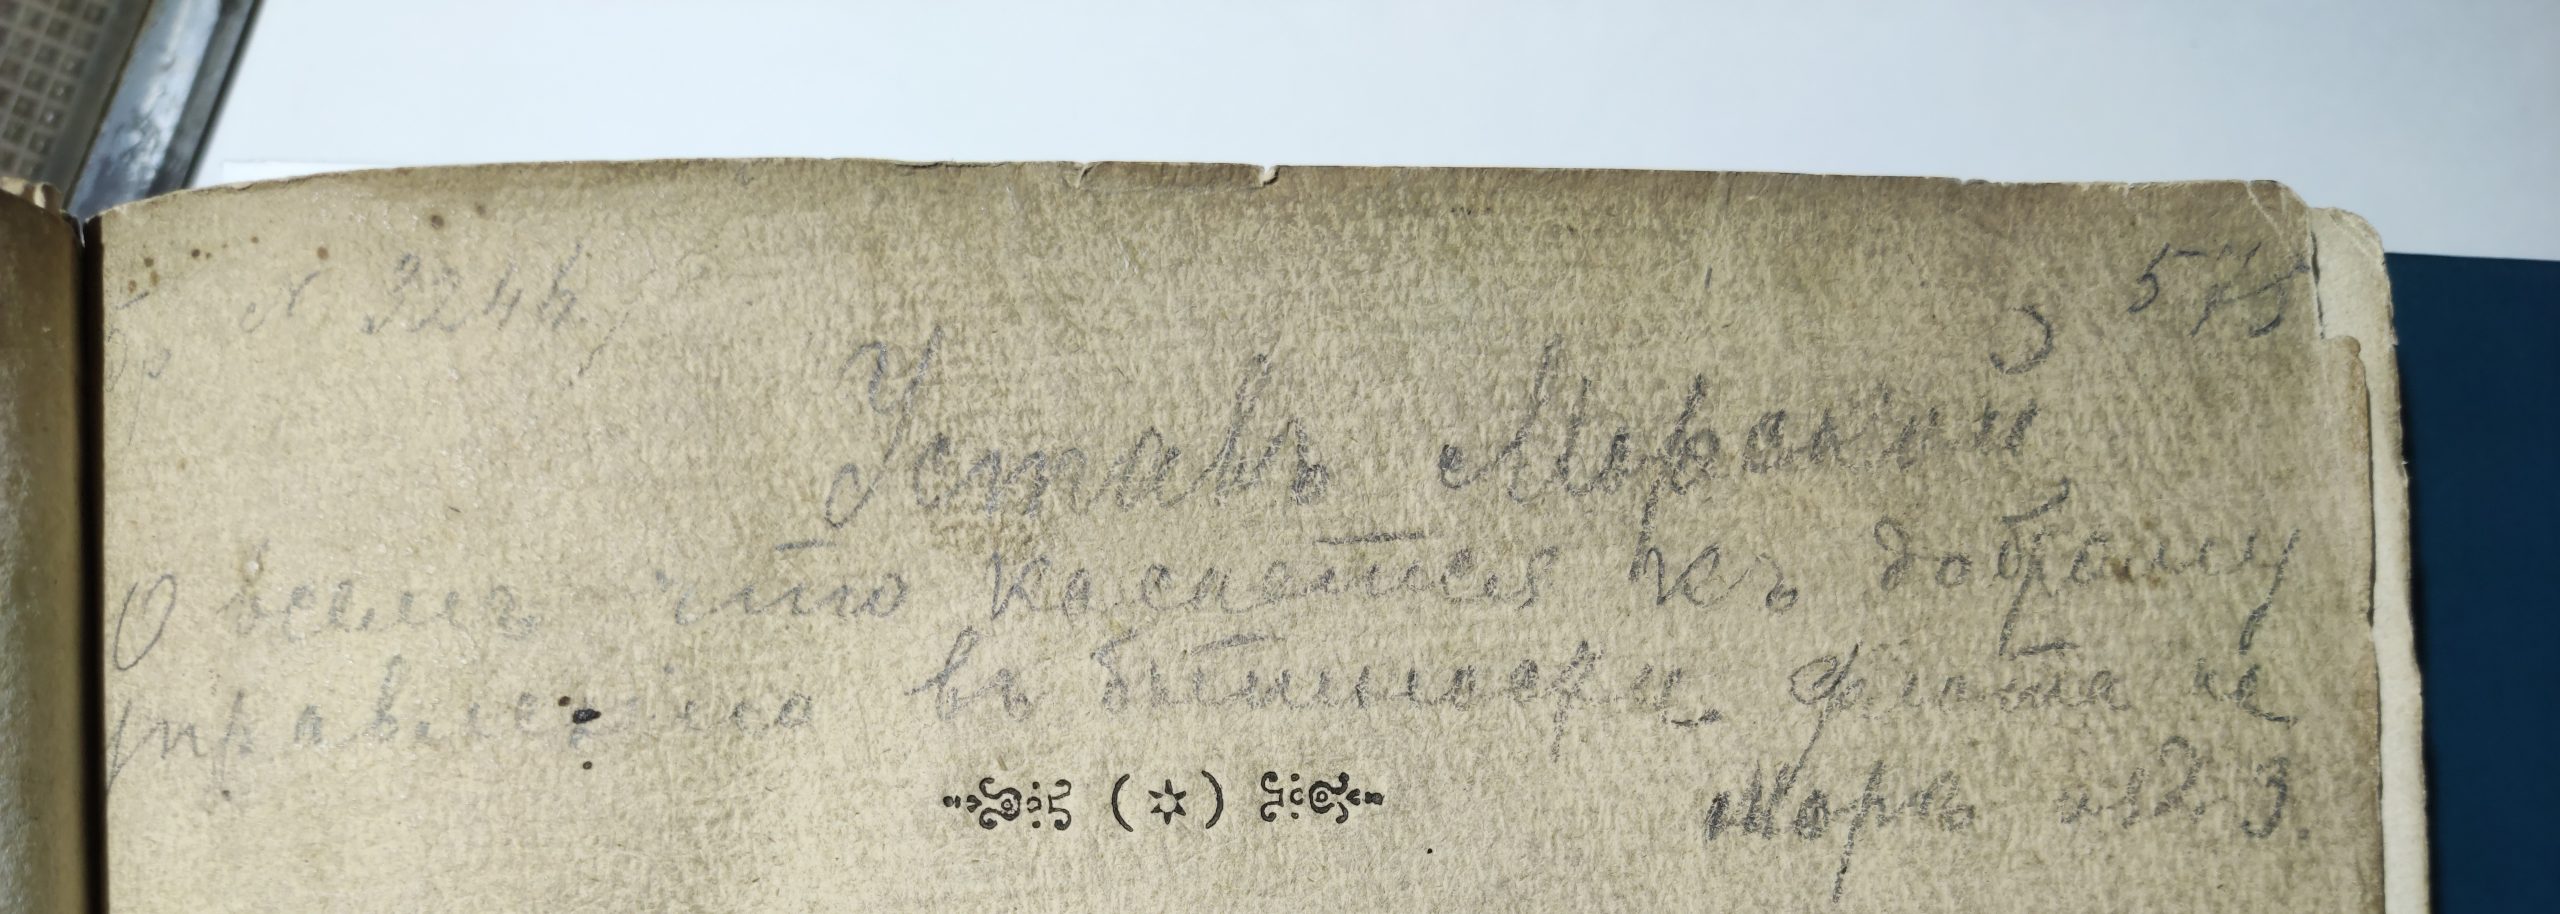 № 3244
575
Уставъ Морской
О всемъ что касается къ доброму
управленiю въ бытности флота на
морѣ